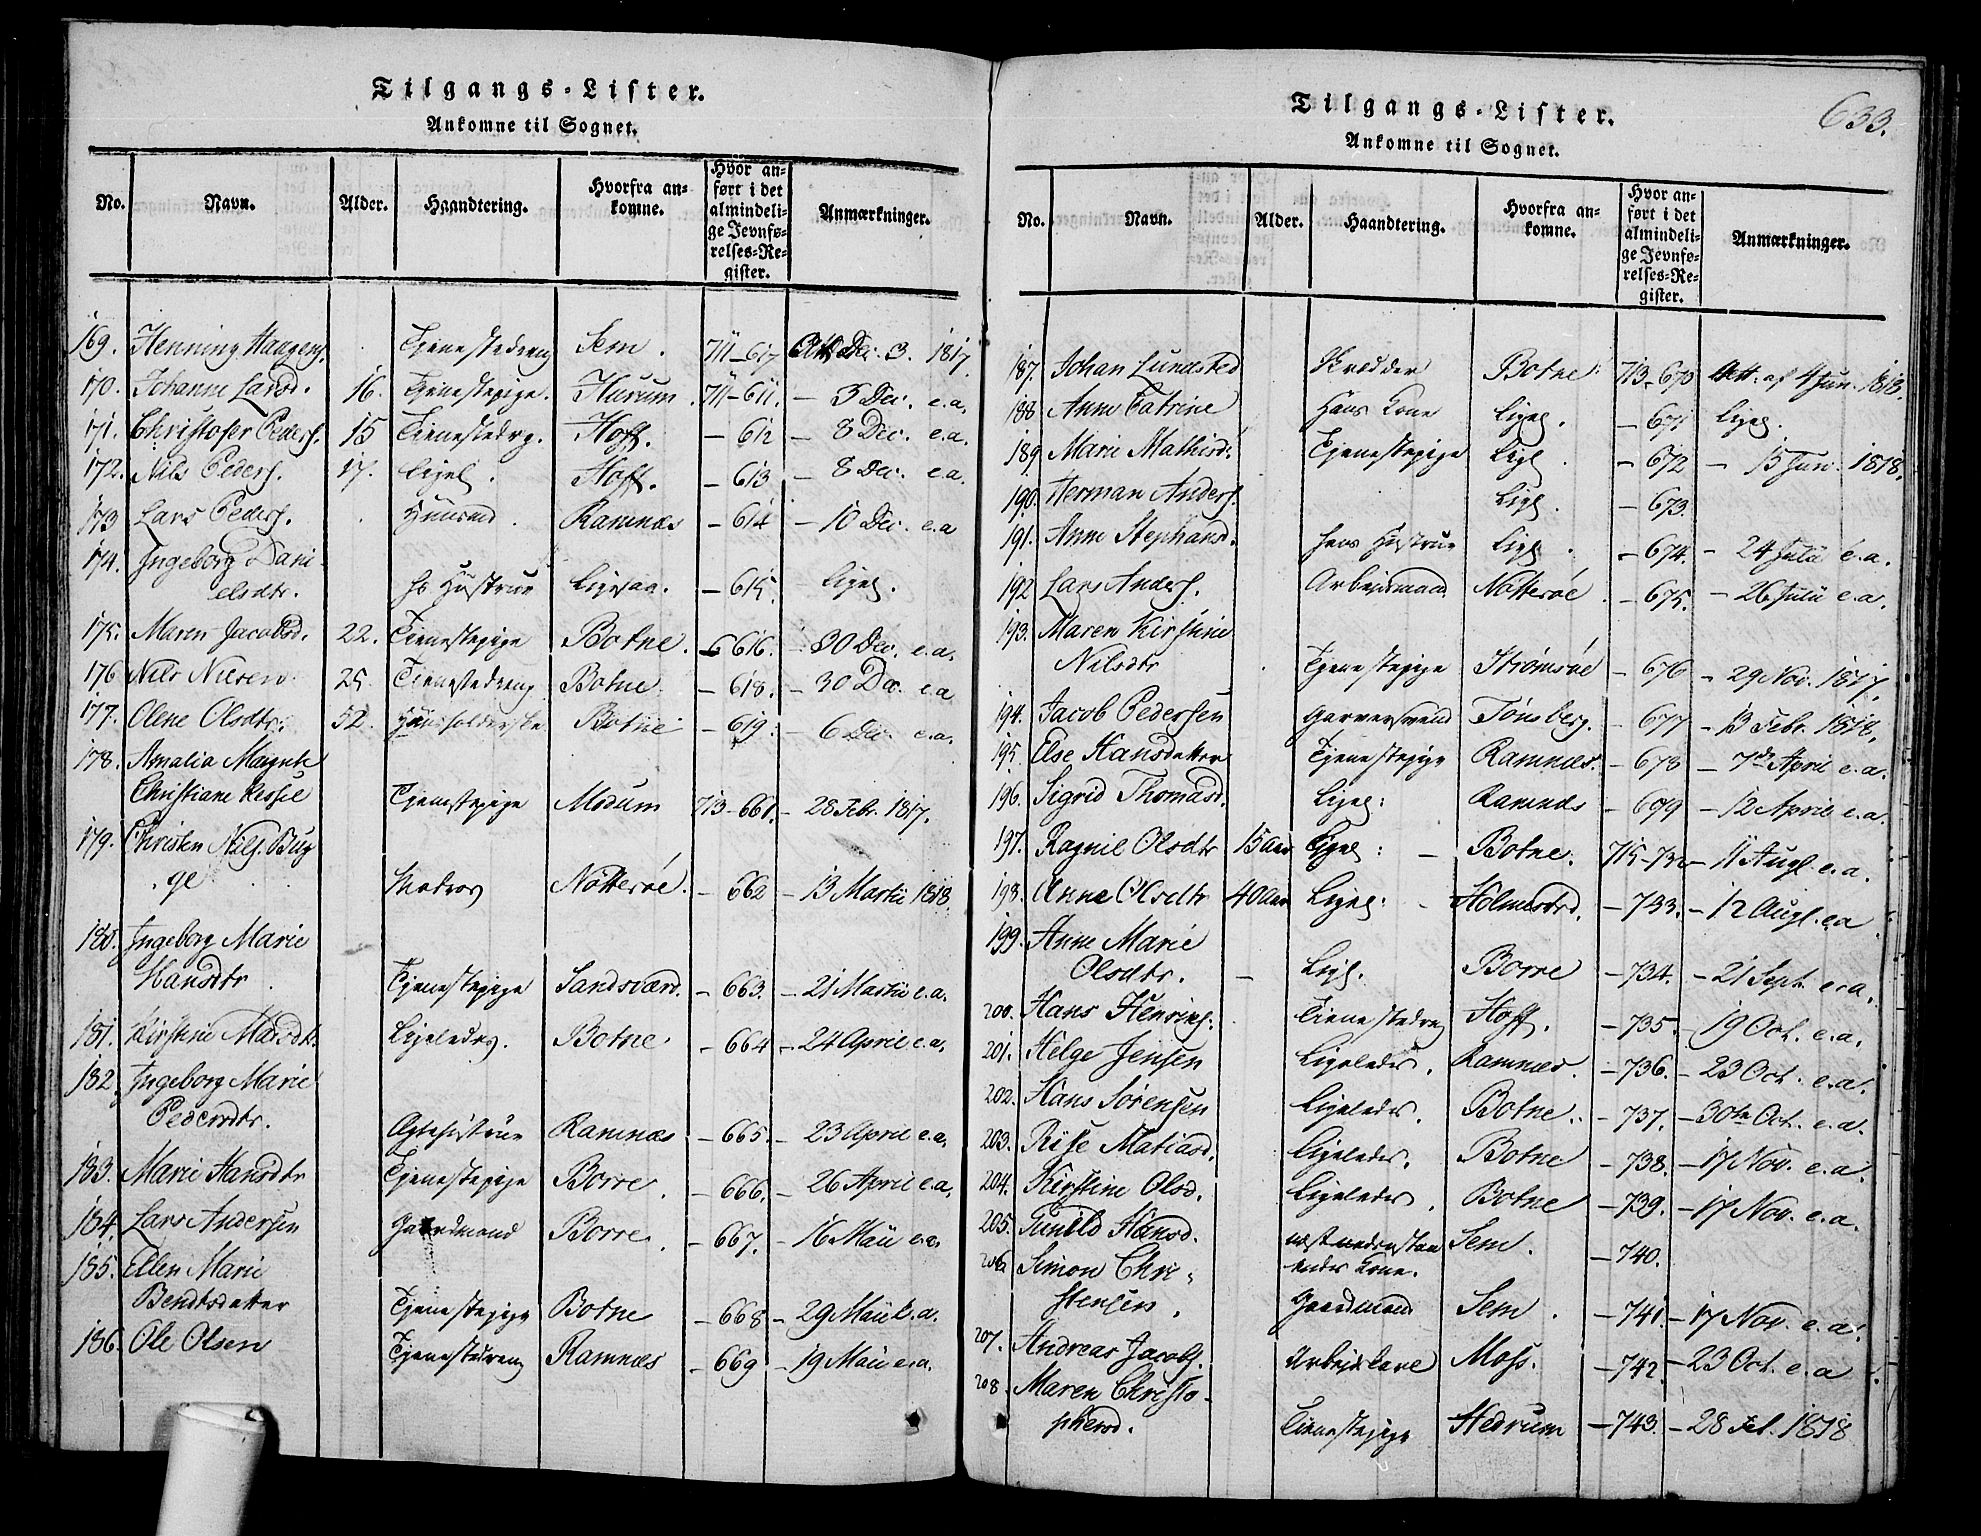 Tilgangs-Lister.
Ankomne til Sognet.
No. Navn. Alder. Haandtering. Hvorfra ankomne. Hvor anført i det almindelige Jevnførelses-Register. Anmærkninger.
169. Henning Haagens. Tjenestedreng Sem. 711-617 Dec. 3. 1817.
170. Johanne Larsd. 16. Tjenestepige. Hurum. 711-611. - 3 Dec. e.a.
171. Christofer Peders. 15 Tienestedrg. Hoff. - 612 - 8 Dec. e.a.
172. Nils Peders. 17. Ligel. Hoff. - 613 - 8 Dec. e.a.
173 Lars Peders. Huusmd. Ramnæs - 614 - 10 Dec. e.a
174. Ingeborg Dani-
elsdtr. Hustrue Ligesaa. - 615. - Ligel.
175. Maren Jacobsd. 22. Tienestepige Botne. - 616. - 30 Dec. e.a.
176 Nils Nilsen 25. Tienestedreng Botne. - 618. - 30 Dec. e.a
177. Olene Olsdtr. 52. Huusholderske Botne - 619. - 6 Dec. e.a.
178. Amalia
Christiane Tjenestepige Modum 713-661. - 28 Febr. 1817.
179. Christen Nils. Bug
ge Matros Nötteröe. - 662 - 13 Martii 1818.
180. Ingeborg Marie
Hansdtr. Tjenestepige Sandsværd. - 663. - 21 Martii e.a.
181. Kirstine Ligeledes. Botne. - 664 - 24 April e.a.
182. Ingeborg Marie
Pedersdtr. Ramnæs - 665. - 23 April e.a.
183. Marie Hansdtr Tjenestepige Borre. - 666. - 26 April e.a.
184. Lars Andersen Gaardmand Borre. - 667. - 16 Maii e.a.
185. Ellen Marie
Bendtsdatter Tjenestepige Botne - 668 - 29 Maii e.a.
186. Ole Olsen Tjenestedreng Ramnæs - 669 - 19 Maii e.a.
633.
Tilgangs-Lister.
Ankomne til Sognet.
No. Navn. Alder. Haandtering. Hvorfra ankomne. Hvor anført i det almindelige Jevnførelses-Register. Anmærkninger.
187. Johan Lundsted Skrædder Botne 713-670 Att. af 4 Jun. 1818.
188. Anne Catrine Hans Kone Ligel. - 671 Ligel.
189. Marie Mathisd. Tjenestepige Ligl. - 672 - 15 Jun. 1818.
190. Herman Anders. Ligl. - 673.
191. Anne Stephansd. Hans Hustrue Ligl. - 674. - 24 Julii e.a.
192 Lars Anders. Arbejdsmand Nötteröe. - 675. - 26 Julii e.a.
193. Maren Kirstine
Nilsdtr Tjenestepige Strömsöe - 676 - 29 Nov. 1817.
194. Jacob Pedersen Garversvend Tönsberg. - 677 - 13 Febr. 1818.
195. Else Hansdatter Tjenestepige Ramnæs. - 678 - 7de April e.a.
196. Sigrid Thomasd. Ligel: Ramnæs - 679 - 12 April e.a.
197. Ragnil Olsdtr 15 Aar Ligel: - Botne. 715-732 - 11 Augl. e.a.
198. Anne Olsdtr 40 Aar Ligel: - Holmestrd. - 733. - 12 Augl. e.a
199. Anne Marie
Olsdtr. - Ligl. Borre - 734. - 21 Sept. e.a.
200. Hans Henrics. Tienestedreng Hoff. - 735. - 19 Oct. e.a.
201. Helge Jensen Ligeledes. Ramnæs. - 736. - 23 Oct. e.a.
202. Hans Sörensen Ligeledes. Botne. - 737. - 30te Oct. e.a.
203. Matiasd. Ligeledes. Botne - 738. - 17 Nov. e.a
204. Kirstine Olsd. Ligeledes. Botne - 739. - 17 Nov. e.a.
205. Gunild Hansd. næstnedenstaa
endes Kone. Sem. - 740.
206 Simon Chri-
stensen. Gaardmand Sem. - 741. - 17 Nov. e.a.
207. Andreas Jacobs. Moss. - 742. - 23 Oct. e.a
208. Maren Christo-
phersd. Tienestepige Hedrum - 743. - 28 Feb. 1818